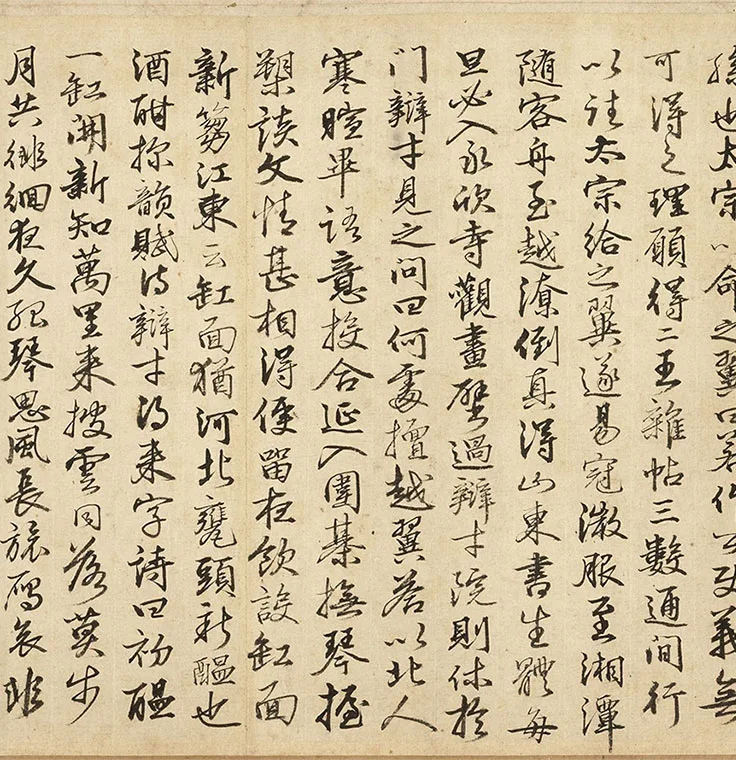 孫也太宗以命之翼曰若作公使義無
可得之理願得二王雜帖三數通間行
以往太宗給之翼遂易冠微服至湘潭
随客舟至越潦倒真得山東書生體每
旦必入永欣寺觀畫壁過辯才院則休於
門辯才見之問曰何處檀越翼答以北人
寒暄畢語意投合延入圍棊撫琴握
槊談文情甚相得便留夜飲設缸面
新蒭江東云缸面猶河北甕頭新醞也
酒酣探韻賦詩辯才得来字詩曰初醞
一缸開新知萬里来披雲同落莫步
月共徘徊夜久孤琴思風長旅鴈哀非